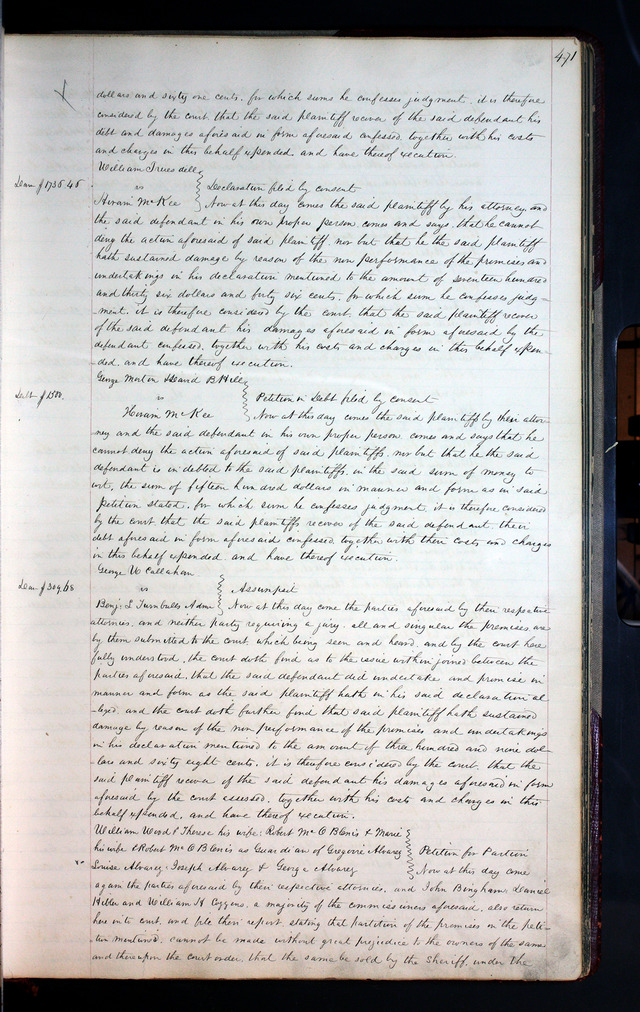 471
dollars and sixty one cents. for which sums he confesses judgment. it is therefore
considered by the court that the said plaintiff recover of the said defendant his
debt and damages aforesaid in form aforesaid confessed together with his costs
and charges in this behalf expended. and have thereof execution.
William
Dam $1736.46 vs Declaration filed by consent
Hiram McKee Now at this day comes the said plaintiff by his attorney and
the said defendant in his own proper person comes and says, that he cannot
deny the action aforesaid of said plaintiff. nor but that he the said plaintiff
hath sustained damage by reason of the non performance of the premises and
undertakings in his declaration mentioned to the amount of seventeen hundred
and thirty six dollars and forty six cents. for which sum he confesses judg-
-ment. it is therefore considered by the court. that the said plaintiff recover
of the said defendant his damages aforesaid in form aforesaid by the
defendant confessed, together with his costs and charges in this behalf expen-
ded. and have thereof execution.
George Morton & David B. Hill
Debt $1500. vs Petition in Debt filed by consent
Hiram McKee Now at this day comes the said plaintiffs by their attor-
ney and the said defendant in his own proper person comes and says that he
cannot deny the action aforesaid of said plaintiffs. nor but that he the said
defendant is indebted to the said plaintiffs. in the said sum of money to
wit, the sum of fifteen hundred dollars in manner and form as in said
petition stated. for which sum he confesses judgment. it is therefore considered
by the court that the said plaintiffs recover of the said defendant their
debt aforesaid in form aforesaid confessed, together with their costs and charges
in this behalf expended. and have thereof execution.
George W Callaham
Dam $309.68 vs Assumpsit
Benj: L Turnbulls Admr Now at this day come the parties aforesaid by their respective
attornies. and neither party requiring a jury. all and singular the premises are
by them submitted to the court. which being seen and heard. and by the court here
fully understood. the court doth find as to the issue within joined between the
parties aforesaid. that the said defendant did undertake and promise in
manner and form as the said plaintiff hath in his said declaration al-
-leged. and the court doth further find that said plaintiff hath sustained
damage by reason of the non performance of the premises and undertakings
in his declaration mentioned to the amount of three hundred and nine dol-
lars and sixty eight cents. it is therefore considered by the court. that the
said plaintiff recover of the said defendant his damages aforesaid in form
aforesaid by the court assessed. together with his costs and charges in this
behalf expended. and have thereof execution.
William Wood & Therese his wife: Robert McO Blenis & Marie
his wife & Robert McO Blenis as Guardian of Gregorie Alvarez Petition for Partiin
Louise Alvarez. Joseph Alvarez & George Alvarez Now at this day come
again the parties aforesaid by their respective attornies. and John Bingham, Daniel
Hibler and William H Cozzens. a majority of the commissioners aforesaid. also return
here into court. and file their report. stating that partition of the premises in the peti-
tion mentioned. cannot be made without great prejudice to the owners of the same
and thereupon the court order. that the same be sold by the Sheriff. under the